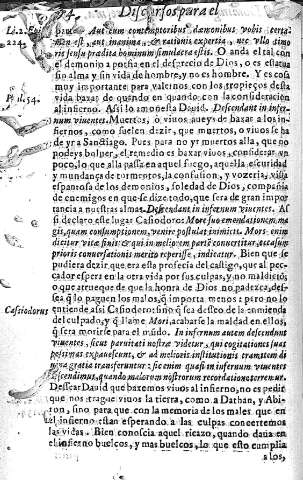 74. Discursos para el
prae. Aut cum contemptoribus damonibus vobis certa-
men est, aut maxima, & rationis expertia, nec vllo simo
ris sensu pradita dominum simulacra estis. O anda el tal con
el demonio a posesia en el desprecio de Dios, o es estatua
sin alma y sin vida de hombre, y no es hombre. Y es cosa
muy importante para valernos con los tropieços desta
vida baxar de quando en quando con la consideracion
al infierno. Assi lo amonesta Dauid. Descendant in infer-
num viuentes. Muertos, o viuos aueys de baxar a los in-
fiernos, como suelen dezir, que muertos, o viuos se ha
de yr a Sanctiago. Pues para no yr muertos alla, que no
podeys boluer, el remedio es baxar viuos, considerar vn
poco, lo que alla passa en aquel fuego, aquella escuridad
y mundanças de tormentos, la confusion, y vozeria, vista
espantosa de los demonios, soledad de Dios, compañia
de enemigos en que se dize todo, que sera de gran impor
tancia a nuestras almas. Descendant in infernum viuentes. As
si declaro este lugar Casiodoro: More suo emendationem ma
gis, quam consumptionem, venire postulat inimicis. Mors enim
dicitur vita finis: & qui in meliorem partem conuertitur, occasum
prioris conuersationis merito reperisse, indicatur. Bien que se
pudiera dezir que era esta profecia del castigo, que al pec-
cador espera en la otra vida por sus culpas, y no maldició
o que atrueque de que la honra de Dios no padezca, des-
sea q̃ lo paguen los malos, q̃ importa menos: pero no lo
entiende assi Casiodoro: sino q̃ sea desseo de la enmienda
del culpado, y q̃ llame Mori, acabarse la maldad en ellos,
q̃ sera morirse para el mũdo. In infernum autem descendunt
viuentes, sicut paruitati nostra videtur, qui cogitationes suas
pessimas expauescunt, & ad melioris institutionis tramitem di
uina gratia transferuntur: sic enim quasi in infernum viuentes
descendimus, quando malorum nostrorum recordatione terremur.
Dessear Dauid que baxemos viuos al infierno, no es pedir
que nos trague viuos la tierra, como a Dathan, y Abi-
ron, sino para que con la memoria de los males que en
el infierno estan esperando a las culpas concertemos
las vidas. Bien conoscia aquel ricazo, quando daua en
el infierno buelcos, y mas buelcos, lo que esto cumplia
a los,
Li. 2. Epi.
224.
Ps. 54.
Cassiodorus